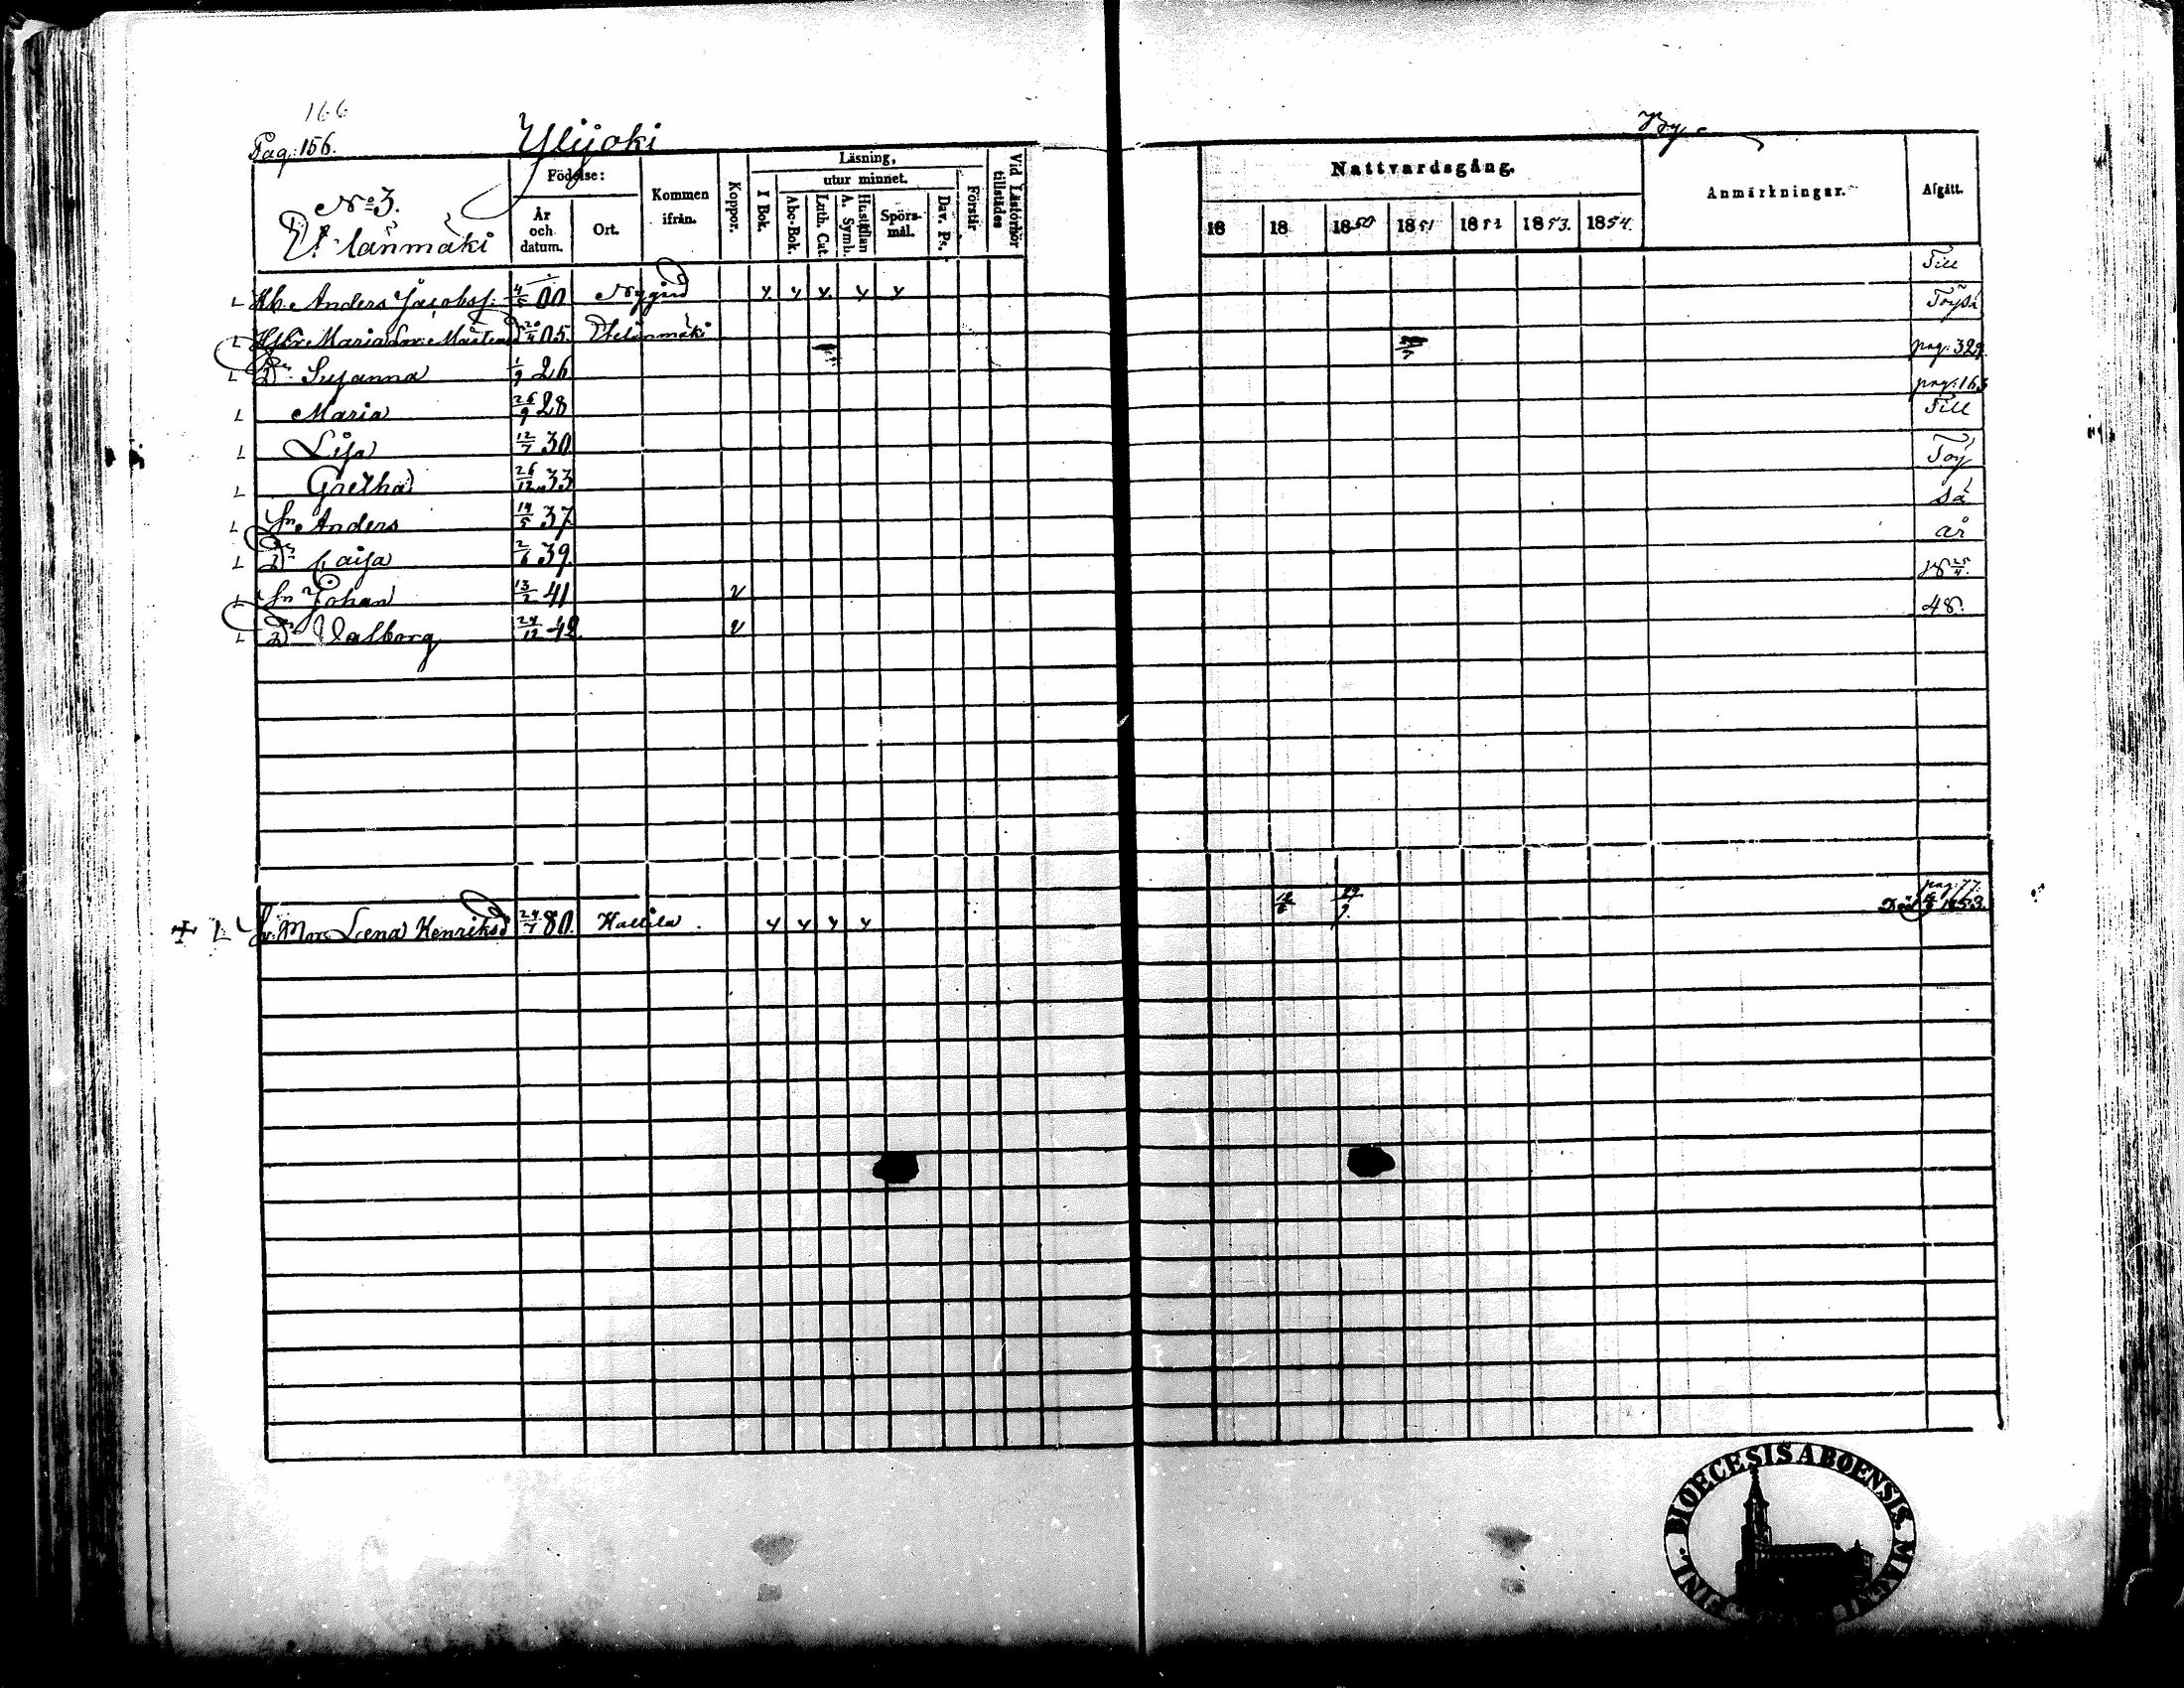 166
Pag: 156. Ylijoki By
No 3.
Födelse:
År och datum.
Ort.
Kommen ifrån.
Koppor.
Läsning,
I Bok.
utur minnet.
Abc-Bok.
Luth. Cat.
Hustaflan A. Symb.
Spörs-mål.
Dav. Ps.
Förstår
Vid Läsförhör tillstädes
Nattvardsgång.
18 18 1850 1851 1852 1853. 1854.
Anmärkningar.
Afgått.
L Hb. Anders Jacobss. 4/5 00 Nygård Till Töysä
L Maria Mårtensd 20/4 05.
L Dr. Susanna 1/9 26 pag: 329
L Maria 26/9 28 pag: 163 Till
L Lisa 12/7 30 Töy
L Gretha 26/12 33 sä
L Sn Anders 14/5 37 år
L Dr Caisa 2/6 39. 25/4.
L Sn Johan 13/2 41 v 48.
L Dr Valborg 24/12 42 v
pag: 77.
+ L Mor Lena Henriksd 24/7 80. Kallila Död 1853.
DIOECESIS ABOENSIS.